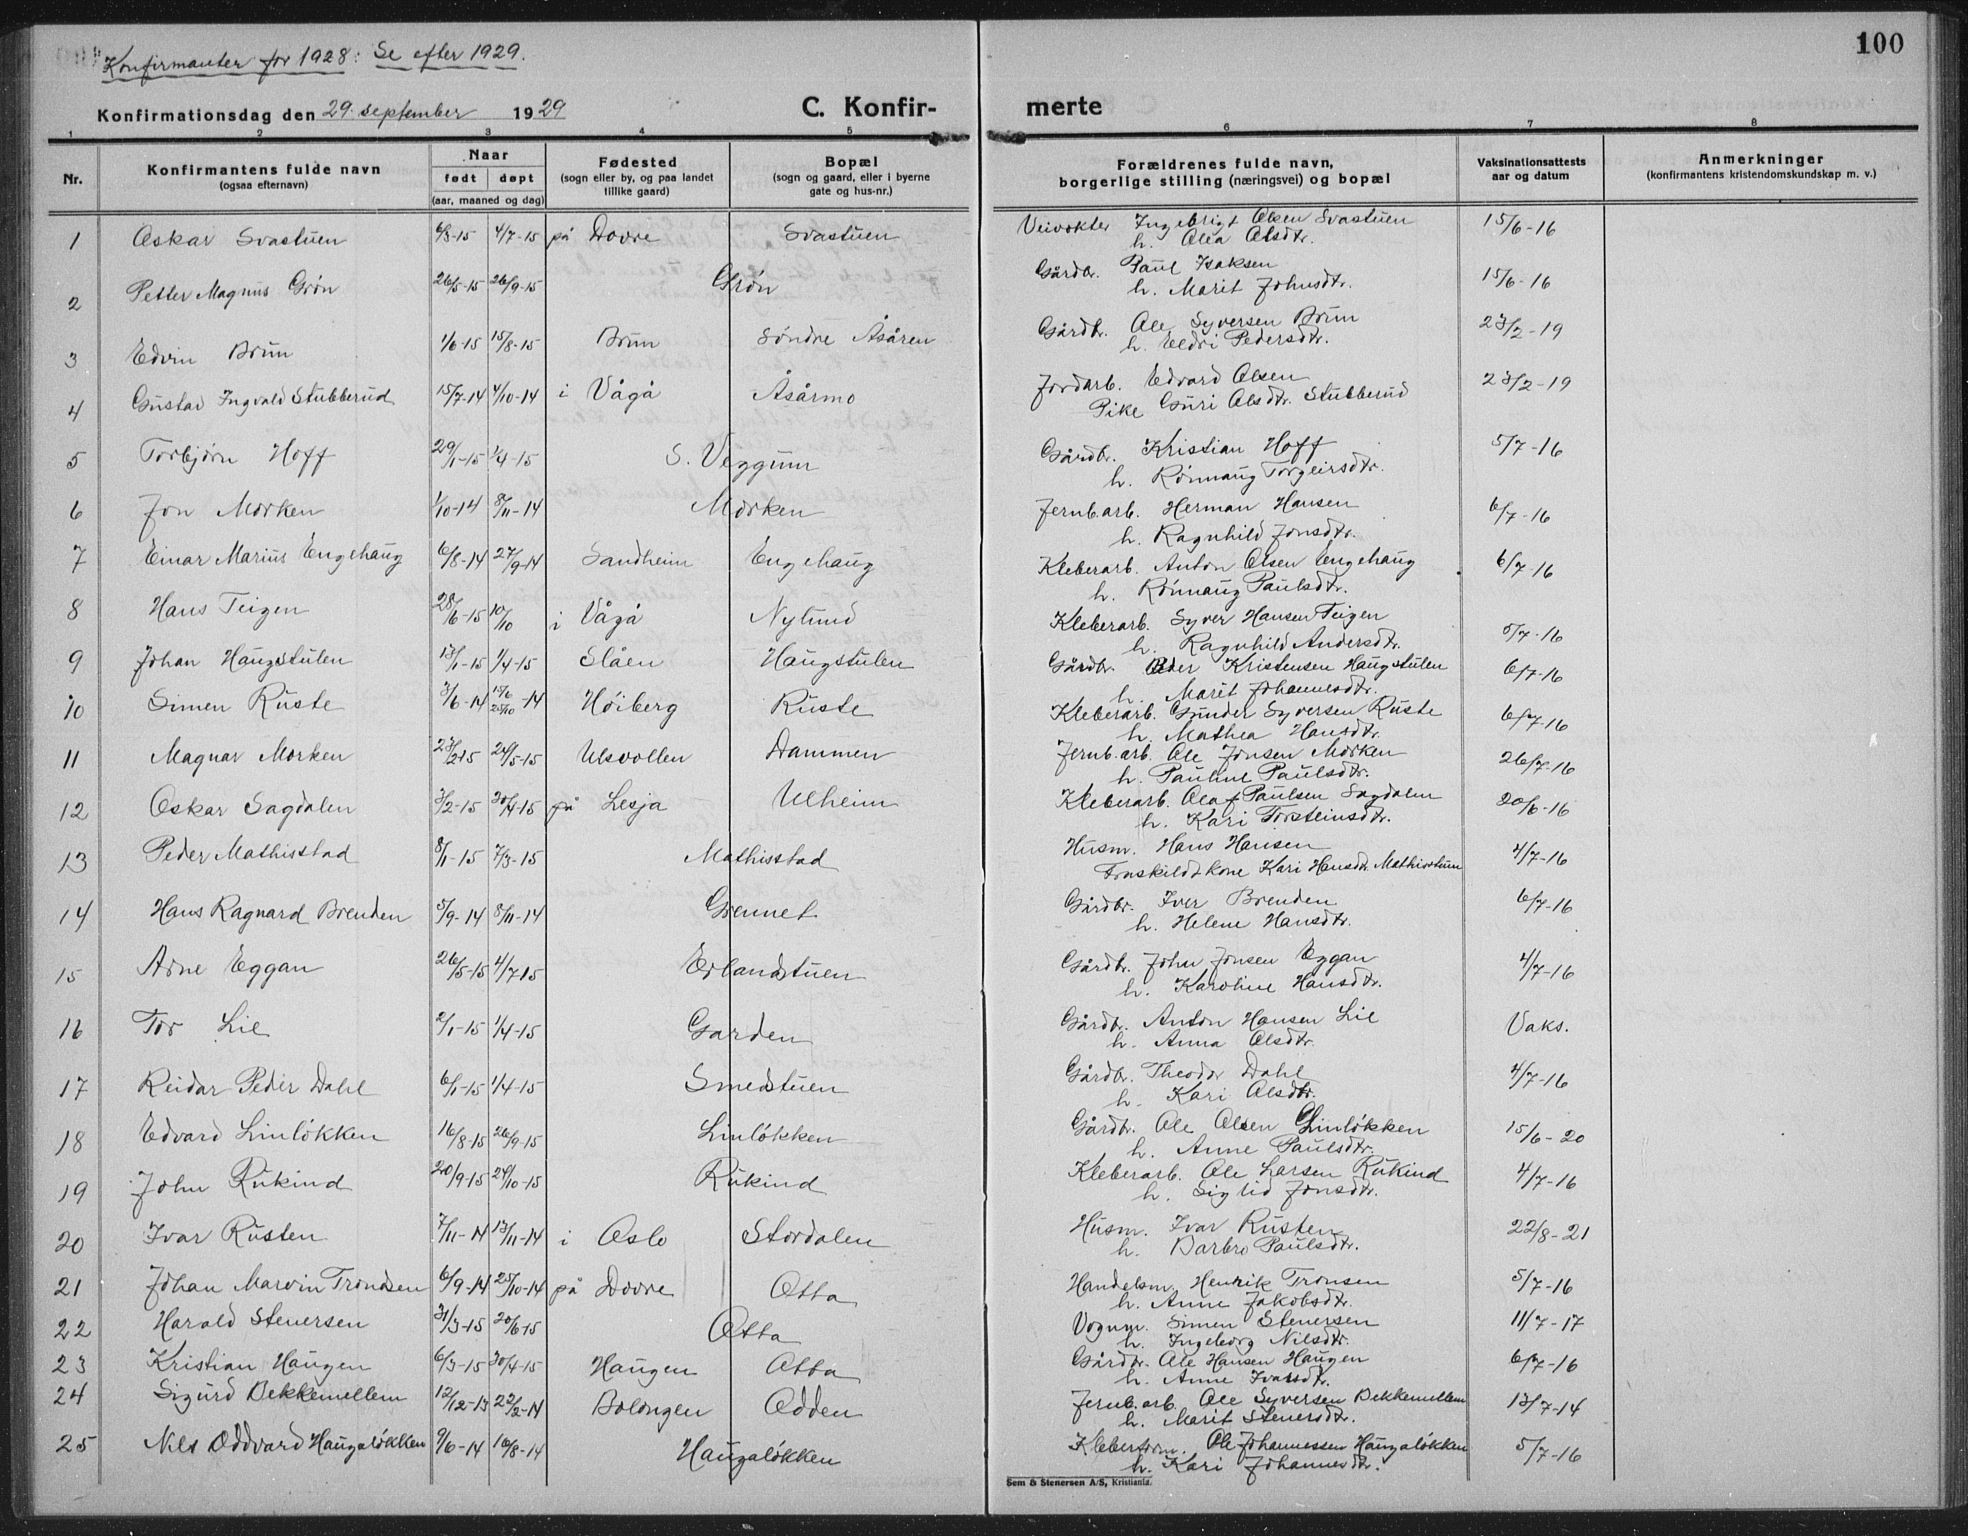 Konfirmanter for 1928: Se efter 1929.
100
Konfirmationsdag den 29. september 1929
C. Konfir-
merte
1 2 3 4 5 6 7 8
Nr.
Konfirmantens fulde navn
(ogsaa efternavn)
Naar
født døpt
(aar, maaned og dag)
Fødested
(sogn eller by, og paa landet
tillike gaard)
Bopæl
(sogn og gaard, eller i byerne
gate og hus-nr.)
Forældrenes fulde navn,
borgerlige stilling (næringsvei) og bopæl
Vaksinationsattests
aar og datum
Anmerkninger
(konfirmantens kristendomskundskap m. v.)
1 Oskar Svastuen 6/3-15 4/7-15 på Dovre Svastuen Veivokter Ingebrigt Olsen Svastuen 15/6-16
h. Olea Olsdtr.
2 Petter Magnus Grøn 26/5-15 26/9-15 Grøn Gårdbr. Paul Isaksen 15/6-16
h. Marit Johnsdtr.
3 Edvin Brun 1/6-15 15/8-15 Brun Søndre Åsåren Gårdbr. Ole Syversen Brun 23/2-19
h. Eldri Pedersdtr.
4 Gustav Ingvald Stubberud 15/7-14 4/10-14 i Vågå Åsårmo Jordarb. Edvard Olsen 23/2-19
Pike Guri Olsdtr. Stubberud
5 Torbjørn Hoff 29/1-15 1/4-15 S. Veggum Gårdbr. Kristian Hoff 5/7-16
h. Rønnaug Torgeirsdtr.
6 Jon Morken 1/10-14 8/11-14 Morken Jernb.arb. Herman Hansen 6/7-16
h. Ragnhild Jonsdtr.
7 Einar Marius Engehaug 6/8-14 27/9-14 Sandheim Engehaug Kleberarb. Anton Olsen Engehaug 6/7-16
h. Rønnaug Paulsdtr.
8 Hans Teigen 28/6-15 10/10 i Vågå Nylund Kleberarb. Syver Hansen Teigen 5/7-16
h. Ragnhild Andersdtr.
9 Johan Haugstulen 13/1-15 1/4-15 Slåen Haugstulen Gårdbr. Peder Kristensen Haugstulen 6/7-16
h. Marit Johannesdtr.
10 Simen Ruste 3/6-14 15/6 25/10-14 Høiberg Ruste Kleberarb. Gunder Syversen Ruste 6/7-16
h. Mathea Hansdtr.
11 Magnar Morken 23/2-15 24/5-15 Ulsvollen Dammen Jernb.arb. Ole Jonsen Morken 26/7-16
h. Pauline Paulsdtr.
12 Oskar Sagdalen 3/2-15 30/4-15 på Lesja Ulheim Kleberarb. Olaf Paulsen Sagdalen 20/6-16
h. Kari Torsteinsdtr.
13 Peder Mathisstad 8/1-15 7/3-15 Mathisstad Husm. Hans Hansen 4/7-16
Fraskildt kone Kari Hansdtr. Mathisstuen
14 Hans Ragnard Brenden 5/9-14 8/11-14 Grennet Gårdbr. Iver Brenden 6/7-16
h. Helene Hansdtr.
15 Arne Eggan 26/5-15 4/7-15 Erlandstuen Gårdbr. John Jonsen Eggan 4/7-16
h. Karoline Hansdtr.
16 Tor Lie 2/1-15 1/4-15 Garden Gårdbr. Anton Hansen Lie Vaks.
h. Anna Olsdtr.
17 Reidar Peder Dahl 6/1-15 1/4-15 Smedstuen Gårdbr. Theodor Dahl 4/7-16
h. Kari Olsdtr.
18 Edvard Linløkken 16/8-15 26/9-15 Linløkken Gårdbr. Ole Olsen Linløkken 15/6-20
h. Anne Paulsdtr.
19 John Rukind 20/9-15 24/10-15 Rukind Kleberarb. Ole Larsen Rukind 4/7-16
h. Siglid Jonsdtr.
20 Ivar Rusten 7/11-14 13/11-14 i Oslo Stordalen Husm. Ivar Rusten 22/8-21
h. Barbro Paulsdtr.
21 Johan Marvin Trondsen 6/9-14 25/10-14 på Dovre Otta Handelsm. Henrik Tronsen 5/7-16
h. Anne Jakobsdtr.
22 Harald Stenersen 31/3-15 20/6-15 Otta Vognm. Simen Stenersen 11/7-17
h. Ingeborg Nilsdtr.
23 Kristian Haugen 6/3-15 30/4-15 Haugen Otta Gårdbr. Ole Hansen Haugen 6/7-16
h. Anne Ivarsdtr.
24 Sigurd Bekkemellem 12/12-13 22/2-14 Bolongen Odden Jernb.arb. Ole Syversen Bekkemellem 13/7-14
h. Marit Stenersdtr.
25 Nils Oddvard Haugaløkken 9/6-14 16/8-14 Haugaløkken Ole Johannessen Haugaløkken 5/7-16
h. Kari Johannesdtr.
Sem & Stenersen A/S, Kristiania.